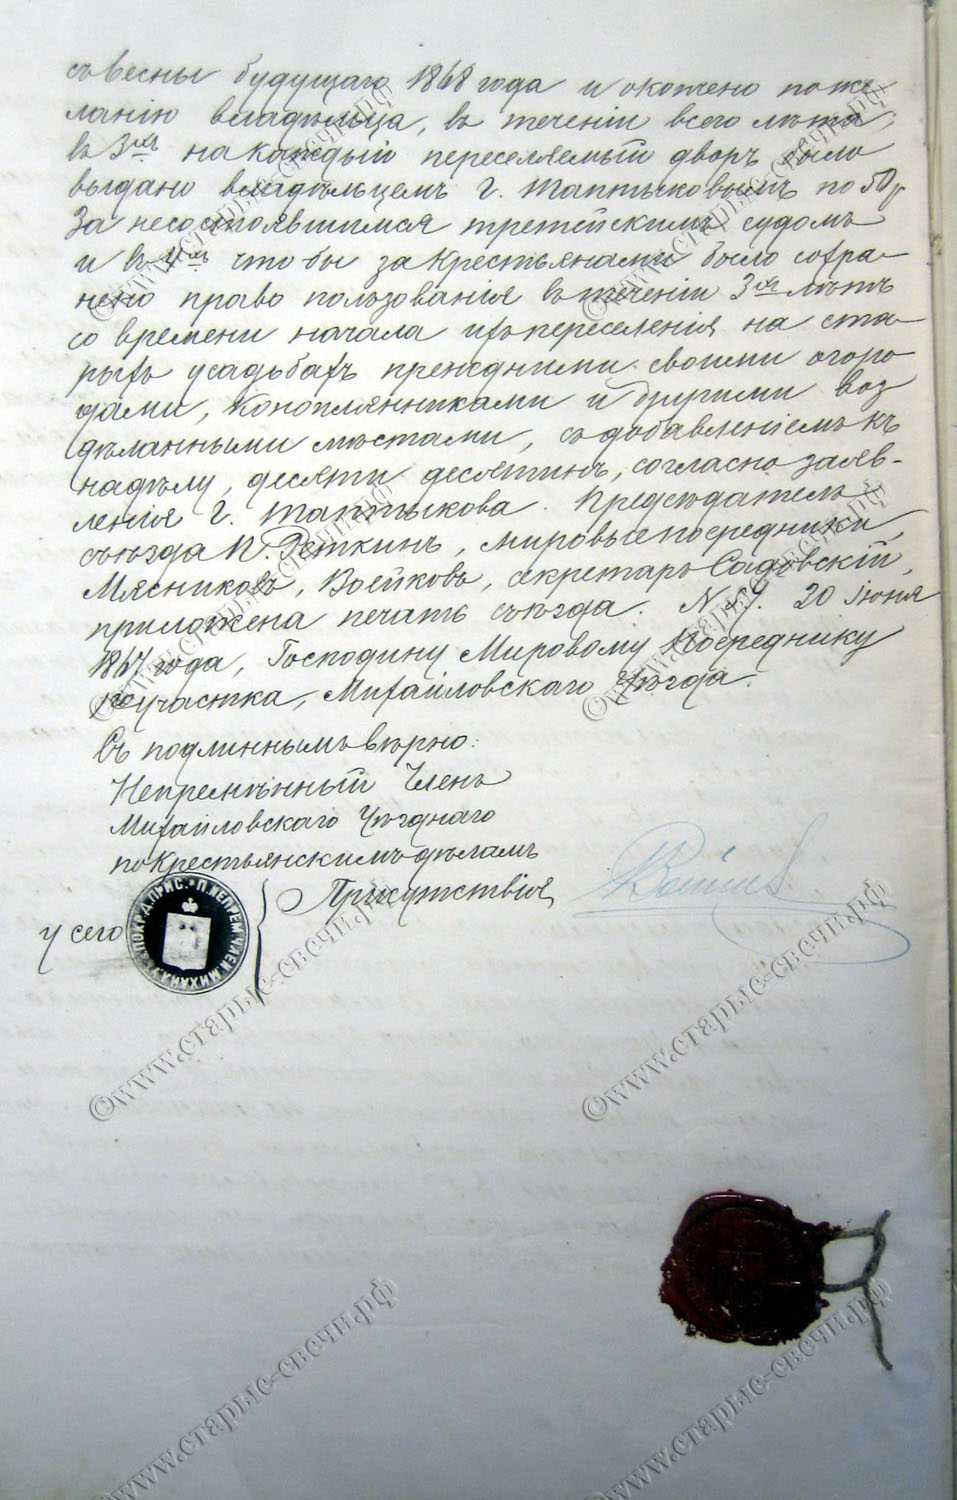 съ весны будущаго 1868 года и окончено по же-
ланію владѣльца, въ теченіи всего лѣта;
въ 3хъ на каждый переселяемый дворъ было
выдано владѣльцемъ Г. Таптыковымъ по 50 р
За несостоявшимся третейскимъ судомъ
и въ 4хъ что бы за крестьянами было сохра-
нено право пользованія въ теченіи 3хъ лѣтъ
со времени начала ихъ переселенія на ста-
рыхъ усадьбахъ преждними своими огоро-
дами, конопляниками и другими воз
дѣланными мѣстами, съ добавленіемъ къ
надѣлу, десяти десятинъ, согласно заяв-
ленія Г. Таптыкова. Предсѣдатель
съѣзда П. Рѣткинъ, мировые посредники,
Мясниковъ, Воейковъ, секретарь Садовскій,
приложена печать съѣзда. N 49. 20 Іюня
1867 года, Господину Мировому Посреднику
1го участка, Михайловскаго Уѣзда.
Съ подлиннымъ вѣрно:
Непремѣнный Членъ
Михайловскаго Уѣзднаго
по Крестьянскимъ дѣламъ
Присутствія,
у сего
©www.старые-свечи.рф
©www.старые-свечи.рф
©www.старые-свечи.рф
©www.старые-свечи.рф
©www.старые-свечи.рф
©www.старые-свечи.рф
©www.старые-свечи.рф
©www.старые-свечи.рф